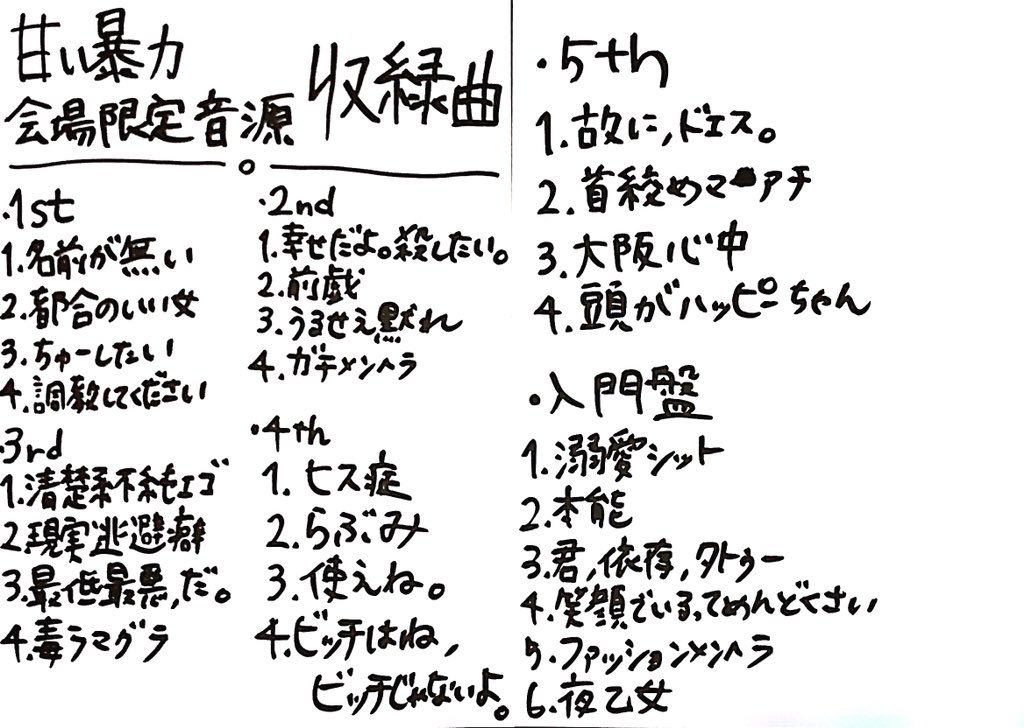 甘い暴力
会場限定音源
収録曲
・1st
1.名前が無い
2.都合のいい女
3.ちゅーしたい
4.調教してください
・2nd
1.幸せだよ。殺したい。
2.前戯
3.うるせえ黙れ
4.ガチメンヘラ
・3rd
1.清楚系不純エゴ
2.現実逃避癖
3.最低最悪,だ。
4.毒ラマグラ
・4th
1.ヒス症
2.らぶみ
3.使えね。
4.ビッチはね,
ビッチじゃないよ。
・5th
1.故に,ドエス。
2.首絞めマーアチ
3.大阪心中
4.頭がハッピーちゃん
・入門盤
1.溺愛シット
2.本能
3.君,依存,タトゥー
4.笑顔でいるってめんどくさい
5.ファッションメンヘラ
6.夜乙女